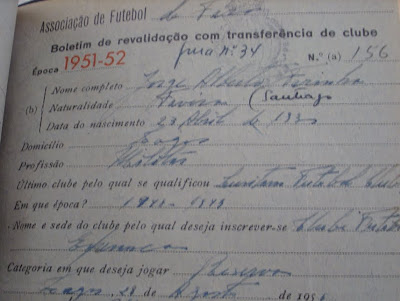 Associação de Futebol de Faro
Boletim de revalidação com transferência de clube
guia nº 34
Época 1951-52 N.º (a) 156
Nome completo Jorge Alberto Farinha
(b) Naturalidade Tavira (Santiago)
Data do nascimento 23 Abril de 1930
Domicílio Lagos
Profissão Militar
Último clube pelo qual se qualificou Lusitano Futebol Clube
Em que época?
Nome e sede do clube pelo qual deseja inscrever-se Clube Futebol
Esperança
Categoria em que deseja jogar Reservas
Lagos, 28 de Agosto de 195